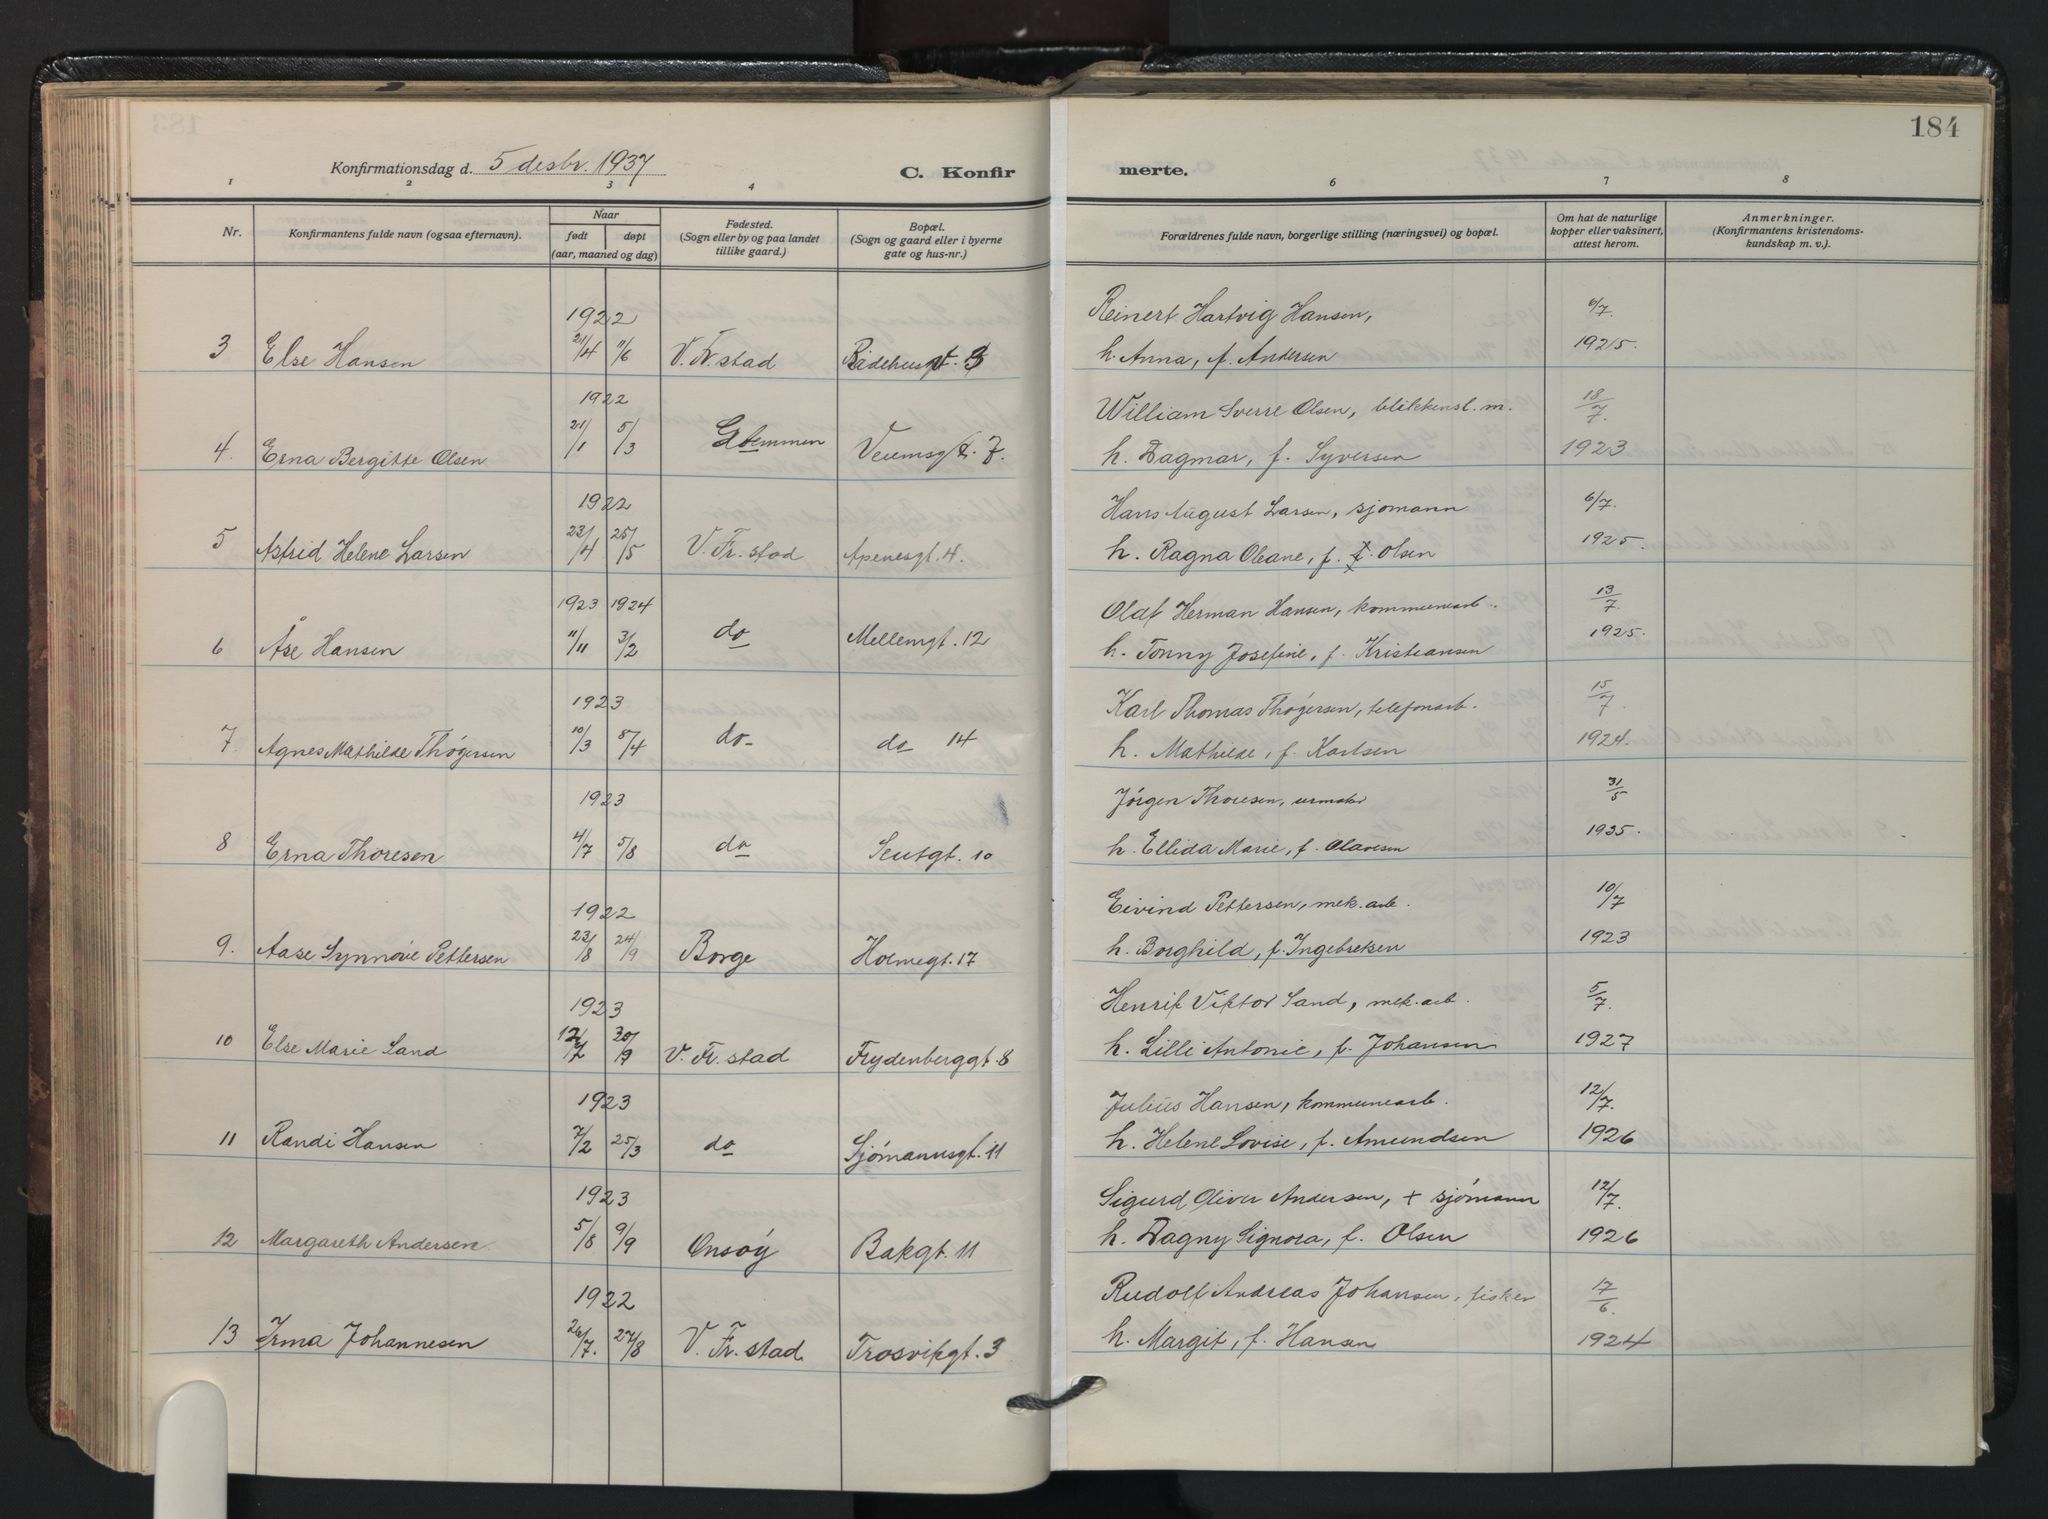 184
Konfirmationsdag d. 5 desbr. 1937
C. Konfir merte.
1 2 3 4 6 7 8
Nr.
Konfirmantens fulde navn (ogsaa efternavn).
Naar
født døpt
(aar, maaned og dag)
Fødested.
(Sogn eller by og paa landet
tillike gaard.)
Bopæl.
(Sogn og gaard eller i byerne
gate og hus-nr.)
Forældrenes fulde navn, borgerlige stilling (næringsvei) og bopæl.
Om hat de naturlige
kopper eller vaksinert,
attest herom.
Anmerkninger.
(Konfirmantens kristendoms-
kundskap m. v.)
1922 Reinert Hartvig Hansen, 6/7.
3 Else Hansen 21/4 11/6 V. Fr. stad Bedehusgt. 3 h. Anna, f. Andersen 1925.
1922 William Sverre Olsen, blikkensl. m. 18/7.
4. Erna Bergitte Olsen 21/1 5/3 Glemmen Veumsgt. 7. h. Dagmar, f. Syversen 1923
1922 Hans August Larsen, sjømann 6/7.
5 Astrid Helene Larsen 23/4 25/5 V. Fr. stad Apenesgt. 4. h. Ragna Oleane, f. Olsen 1925.
1923 1924 Olaf Herman Hansen, kommunearb. 13/7.
6 Åse Hansen 11/11 3/2 do Mellemgt. 12 h. Tonny Josefine, f. Kristiansen 1925.
1923 Karl Thomas Thøgersen, telefonarb. 15/7
7. Agnes Mathilde Thøgersen 10/3 8/4 do do 14 h. Mathilde, f. Karlsen 1924.
1923 Jørgen Thoresen, urmaker 31/5
8 Erna Thoresen 4/7 5/8 do Seutgt. 10 h. Ellida Marie, f. Olavesen 1935.
1922 Eivind Pettersen, mek. arb. 10/7
9. Aase Synnøve Pettersen 23/8 24/9 Borge Holmegt. 17 h. Borghild, f. Ingebretsen 1923
1923 Henrik Viktor Sand, mek. arb. 5/7.
10 Else Marie Sand 12/2 20/9 V. Fr. stad Frydenberggt. 8 h. Lilli Antonie, f. Johansen 1927
1923 Julius Hansen, kommunearb. 12/7.
11 Randi Hansen 7/2 25/3 do Sjømannsgt. 11 h. Helene Lovise, f. Amundsen 1926
1923 Sigurd Oliver Andersen, + sjømann 12/7.
12 Margareth Andersen. 5/8 9/9 Onsøy Bakgt. 11 h. Dagny Signora, f. Olsen 1926
1922 Rudolf Andreas Johansen, fisker 17/6.
13 Irma Johannesen 26/7. 27/8 V. Fr. stad Trosvikgt. 3 h. Margit, f. Hansen 1924